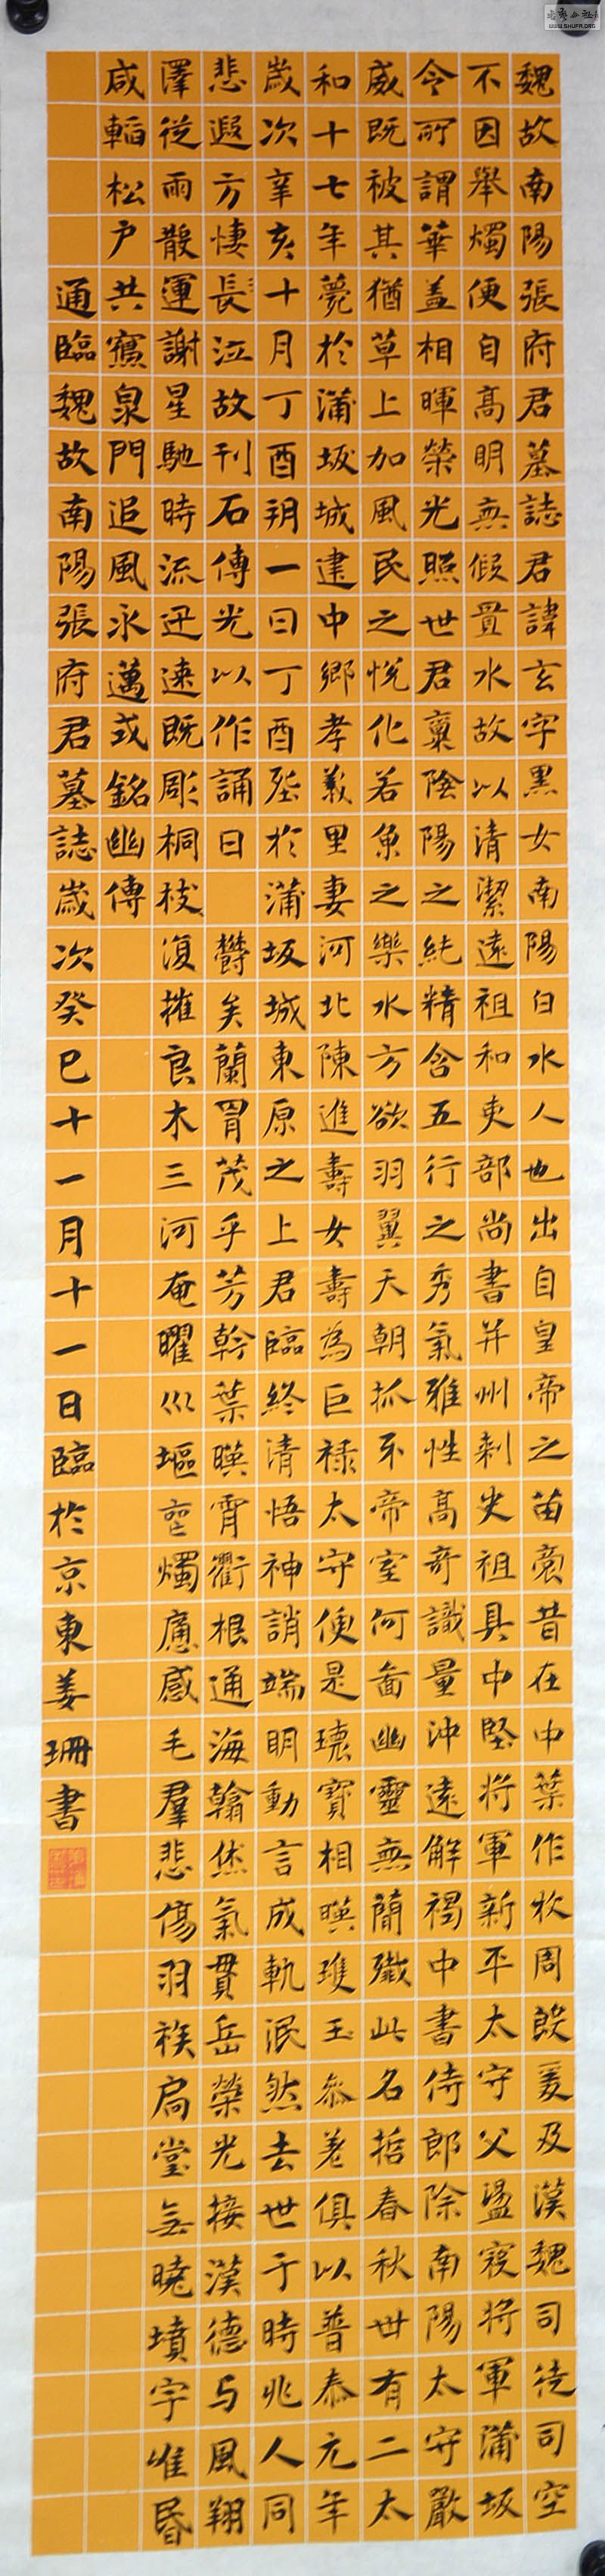 魏故南陽張府君墓誌君諱玄字黑女南陽白水人也出自皇帝之苗裔昔在中葉作牧周殷爰及漢魏司徒司空
不因舉燭便自高明無假置水故以清潔遠祖和吏部尚書并州刺史祖具中堅將軍新平太守父盪寇將軍蒲坂
令所謂華盖相暉榮光照世君稟陰陽之純精含五行之秀氣雅性高奇識量沖遠解褐中書侍郎除南陽太守嚴
威既被其猶草上加風民之悅化若魚之樂水方欲羽翼天朝抓牙帝室何啚幽靈無簡殲此名哲春秋卅有二太
和十七年薨於蒲坂城建中鄉孝義里妻河北陳進壽女壽為巨祿太守便是瓌寶相暎瓊玉參差俱以普泰元年
歲次辛亥十月丁酉朔一日丁酉塟於蒲坂城東原之上君臨終清悟神誚端明動言成軌泯然去世于時兆人同
悲遐方悽長泣故刊石傳光以作誦曰 鬱矣蘭胄茂乎芳幹葉暎霄衢根通海翰烋氣貫岳榮光接漢德与風翔
澤從雨散運謝星馳時流迅速既彫桐枝復摧良木三河奄曜巛塸喪燭痛感毛羣悲傷羽族扃堂無曉墳宇惟昏
咸韜松戶共寢泉門追風永邁式銘幽傳
通臨魏故南陽張府君墓誌歲次癸巳十一月十一日臨於京東姜珊書
WWW.SHUFA.ORG